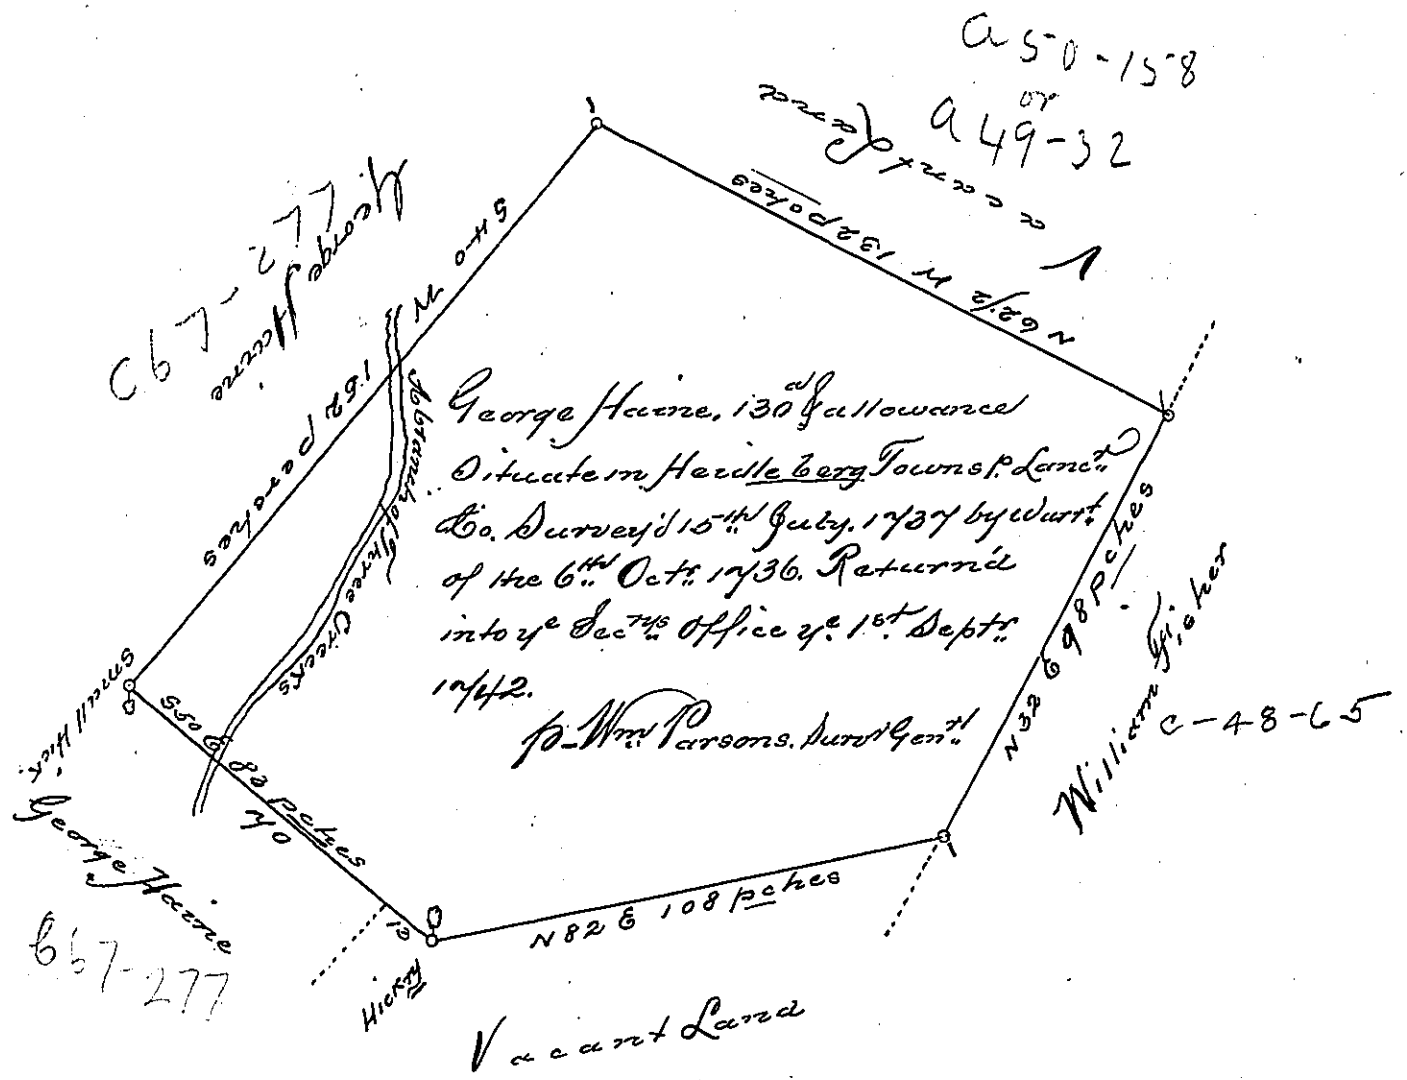 a 50-158
or
a 49-32
Vacant Land
N 62½ W 132 poches
George Haine
C67-277
S 40 W 152 perches
A branch of Three Creeks
George Haine, 130 a & allowance
Situate in Heidleberg Townsp. Lancr
Co. Survey'd 15th July. 1737 by Warrt
of the 6th Octr. 1736. Return'd
into ye Secrys Office ye 1st Septr
1742.
p Wm Parsons. Survr Genrl
N 32 E 98 pches
William Fisher
C-48-65
Small Hick.
S 50 E 82 pches
70
12
George Haine
C67-277
N 82 E 108 pches
Hickry
Vacant Land